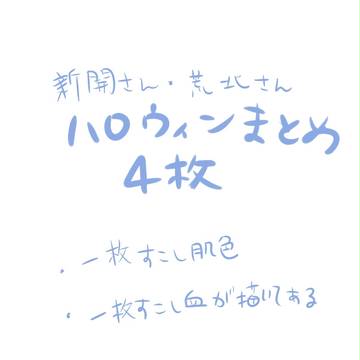 新開さん・荒北さん
ハロウィンまとめ
4枚
・一枚すこし肌色
・一枚すこし血が描いてある